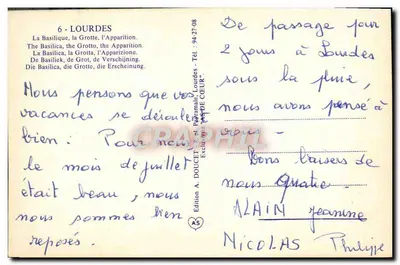 6 - LOURDES
La Basilique, la Grotte, l'Apparition.
The Basilica, the Grotto, the Apparition.
La Basilica, la Grotta, l'Apparizione.
De Basiliek, de Grot, de Verschijning.
Die Basilica, die Grotte, die Erscheinung.
Nous pensons que vos
vacances se déroulent
bien. Pour nous
le mois de juillet
était beau, nous
nous sommes bien
reposés.
Edition A. DOUCET
Lourdes - Tél. : 94-27-08
DE CŒUR"
AS
De passage pour
2 jours à Lourdes
sous la pluie,
nous avons pensé à
vous -
Bons baisers de
nous quatre.
ALAIN Jeanine
NICOLAS Philippe